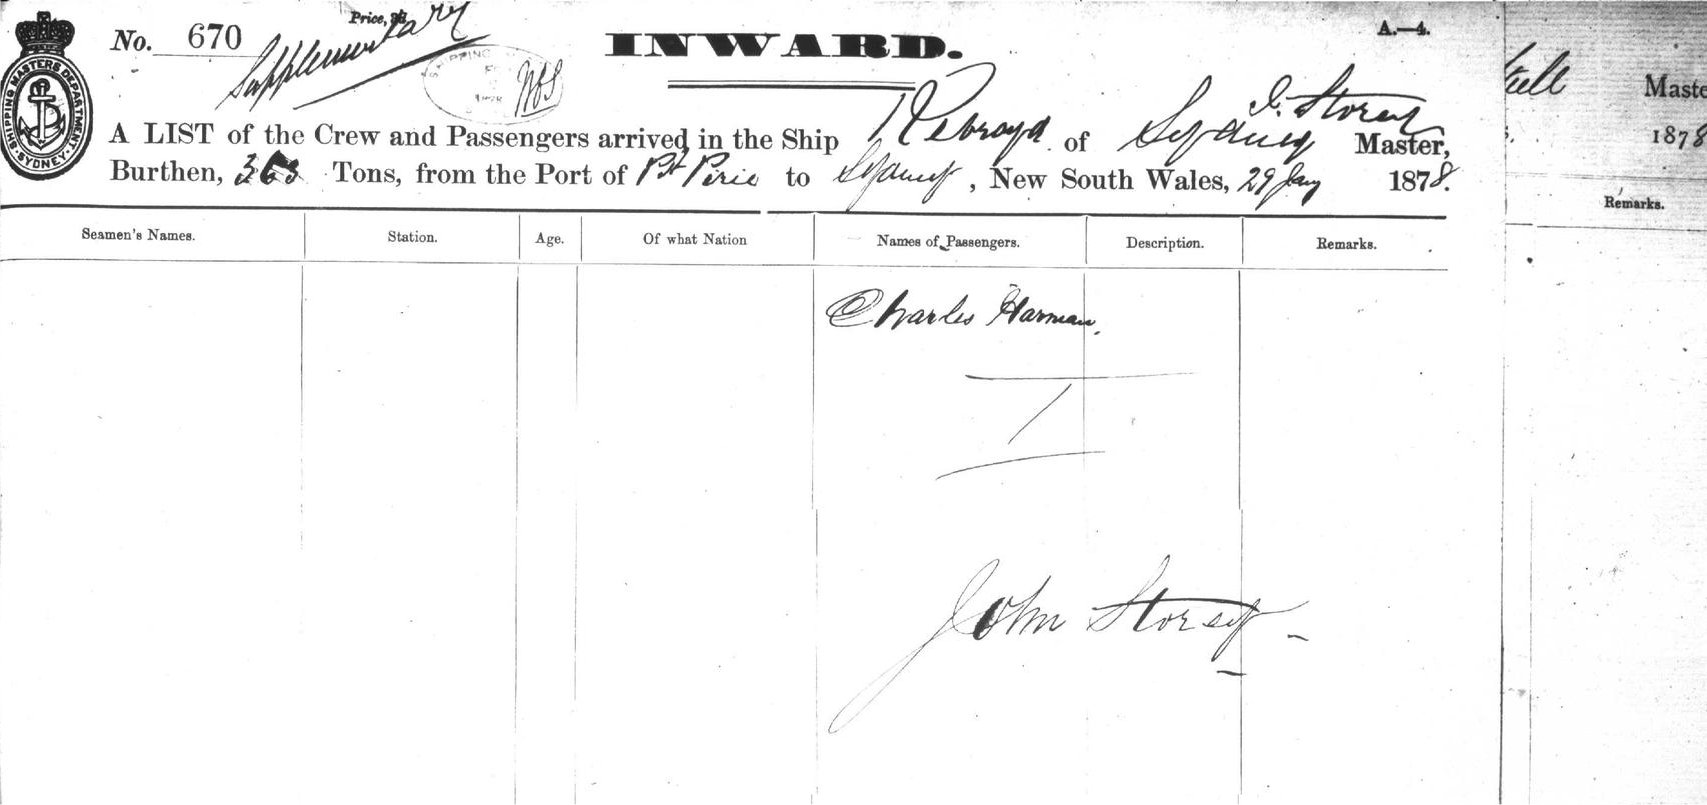 Price, 3d
A.—4.
No. 670
Supplementary
INWARD.
SHIPPING MASTERS DEPARTMENT
SYDNEY
SHIPPING
WBS
J. Storey
A LIST of the Crew and Passengers arrived in the Ship of Sydney Master,
Burthen, 363 Tons, from the Port of Pt Pirie to Sydney, New South Wales, 29 Jany 1878.
Seamen's Names. Station. Age. Of what Nation Names of Passengers. Description. Remarks.
Charles Harman.
1
John Storey
Maste
1878
Remarks.